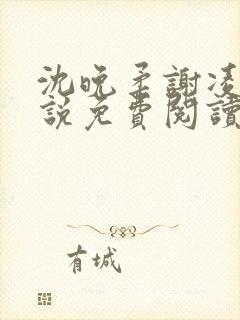 沈晚柔謝凌
說免費閱讀
有城